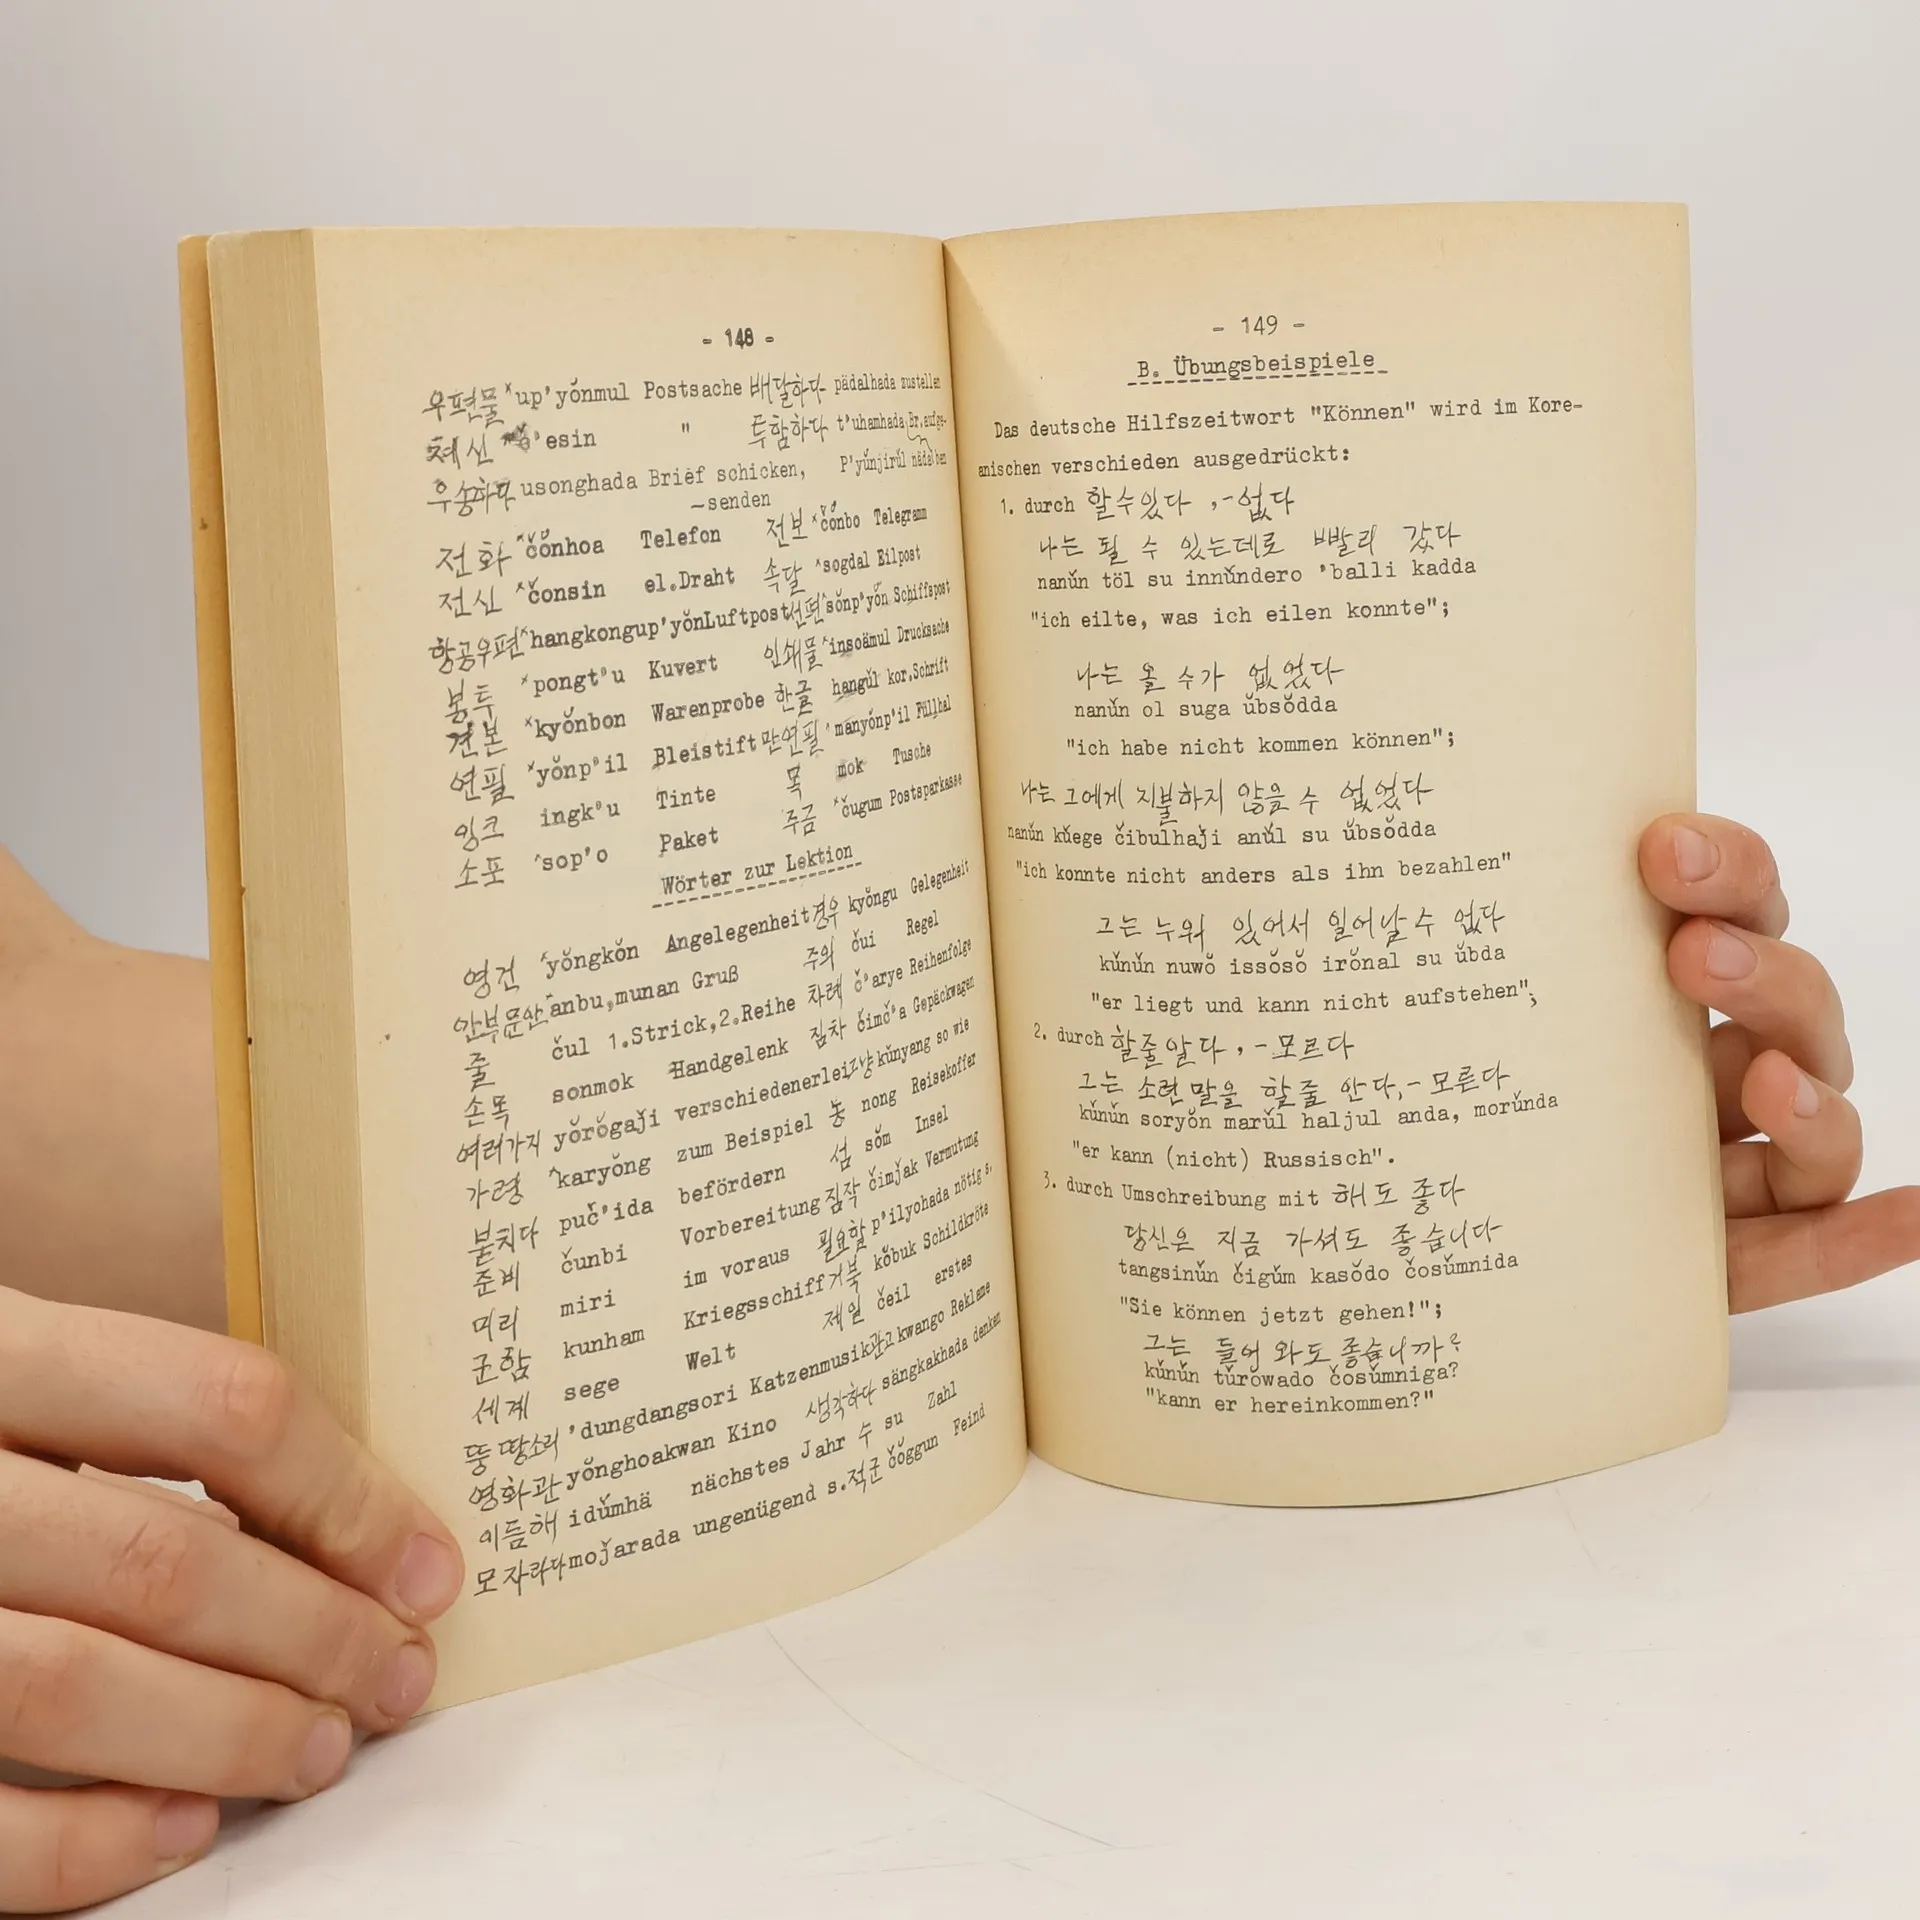 - 148 -
우편물 ˣup'yŏnmul Postsache 배달하다 pädalhada zustellen
체신 'esin " 투함하다 t'uhamhada Br.aufge-
우송하다 usonghada Brief schicken, P'yŭnjirŭl näda ben
~senden
전화 ˣčŏnhoa Telefon 전보 ˣčŏnbo Telegramm
전신 ˣčonsin el.Draht 속달 ˣsogdal Eilpost
항공우편 ˣhangkongup'yŏn Luftpost 선편 ˣsŏnp'yŏn Schiffspost
봉투 ˣpongt'u Kuvert 인쇄물 ˣinsoämul Drucksache
견본 ˣkyŏnbon Warenprobe 한글 hangŭl kor.Schrift
연필 ˣyŏnp'il Bleistift 만연필 'manyŏnp'il Füllhal
잉크 ingk'u Tinte 묵 mok Tusche
소포 ˣsop'o Paket 주금 ˣčugum Postsparkasse
Wörter zur Lektion
영건 ˣyŏngkŏn Angelegenheit 경우 kyŏngu Gelegenheit
안부문안 ˣanbu,munan Gruß 주의 čui Regel
줄 čul 1.Strick,2.Reihe 차례 č'arye Reihenfolge
손목 sonmok Handgelenk 짐차 čimč'a Gepäckwagen
여러가지 yŏrŏgaǰi verschiedenerlei 그냥 kŭnyang so wie
가령 ˣkaryŏng zum Beispiel 농 nong Reisekoffer
붙치다 puč'ida befördern 섬 sŏm Insel
준비 čunbi Vorbereitung 짐작 čimǰak Vermutung
미리 miri im voraus 필요할 p'ilyohada nötig s.
군함 kunham Kriegsschiff 거북 kŏbuk Schildkröte
세계 sege Welt 제일 čeil erstes
뚱땅소리 'dungdangsori Katzenmusik 광고 kwango Reklame
영화관 yŏnghoakwan Kino 생각하다 sängkakhada denken
이듬해 idŭmhä nächstes Jahr 수 su Zahl
모자라다 moǰarada ungenügend s. 적군 čŏggun Feind
- 149 -
B. Übungsbeispiele
Das deutsche Hilfszeitwort "Können" wird im Kore-
anischen verschieden ausgedrückt:
1. durch 할수있다 ,-없다
나는 될 수 있는데로 빨리 갔다
nanŭn töl su innŭndero 'balli kadda
"ich eilte, was ich eilen konnte";
나는 올 수가 없었다
nanŭn ol suga ŭbsŏdda
"ich habe nicht kommen können";
나는 그에게 지불하지 않을 수 없었다
nanŭn kŭege čibulhaǰi anŭl su ŭbsŏdda
"ich konnte nicht anders als ihn bezahlen"
그는 누워 있어서 일어날 수 없다
kŭnŭn nuwŏ issŏsŏ irŏnal su ŭbda
"er liegt und kann nicht aufstehen";
2. durch 할줄알다 ,-모르다
그는 소련 말을 할줄 안다,-모른다
kŭnŭn soryŏn marŭl haljul anda, morŭnda
"er kann (nicht) Russisch".
3. durch Umschreibung mit 해도 좋다
당신은 지금 가셔도 좋습니다
tangsinŭn čigŭm kasŏdo čosŭmnida
"Sie können jetzt gehen!";
그는 들어 와도 좋습니까?
kŭnŭn tŭrŏwado čosŭmniga?
"kann er hereinkommen?"